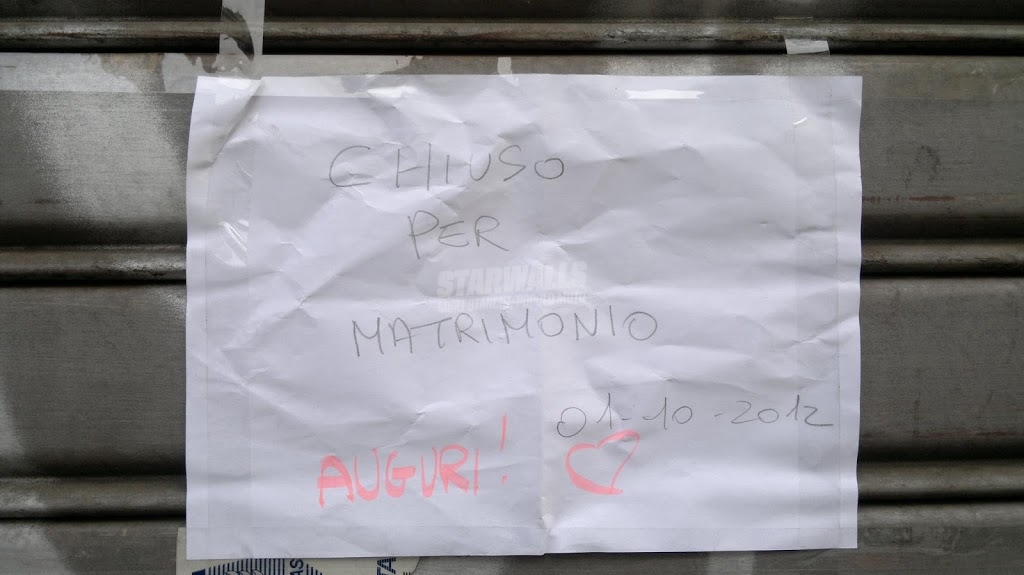 CHIUSO
PER
STARWALLS
MATRIMONIO
01-10-2012
AUGURI!